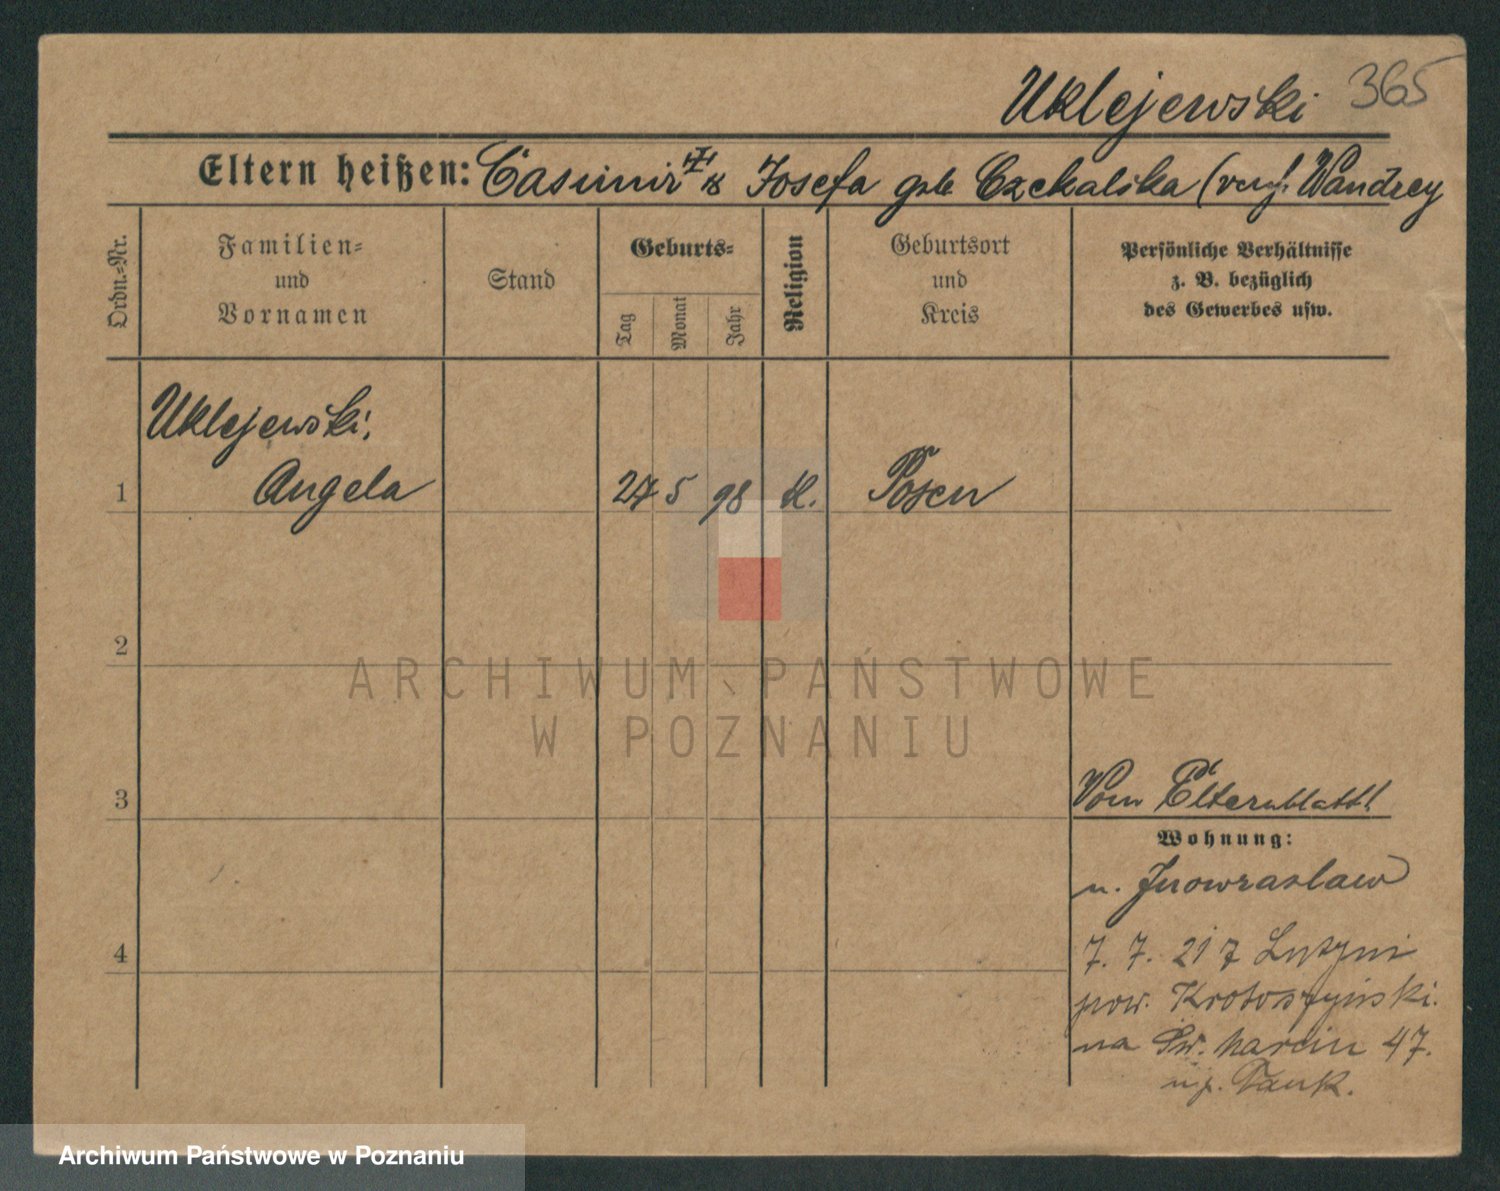 Uklejewski 365
Eltern heißen: Casimir u Josefa geb Czekalska (verh. Wandrey
Ordn.=Nr.
Familien=
und
Vornamen
Stand
Geburts=
Tag
Monat
Jahr
Religion
Geburtsort
und
Kreis
Persönliche Verhältnisse
z. B. bezüglich
des Gewerbes usw.
Uklejewski,
1 Angela 27 5 98 k. Posen
2
ARCHIWUM PAŃSTWOWE
W POZNANIU
3 Vom Elternblatt!
Wohnung:
n. Inowraslaw
4 7. 7. 21 z
pow. Krotoszyński.
na Św. Marcin 47.
Archiwum Państwowe w Poznaniu